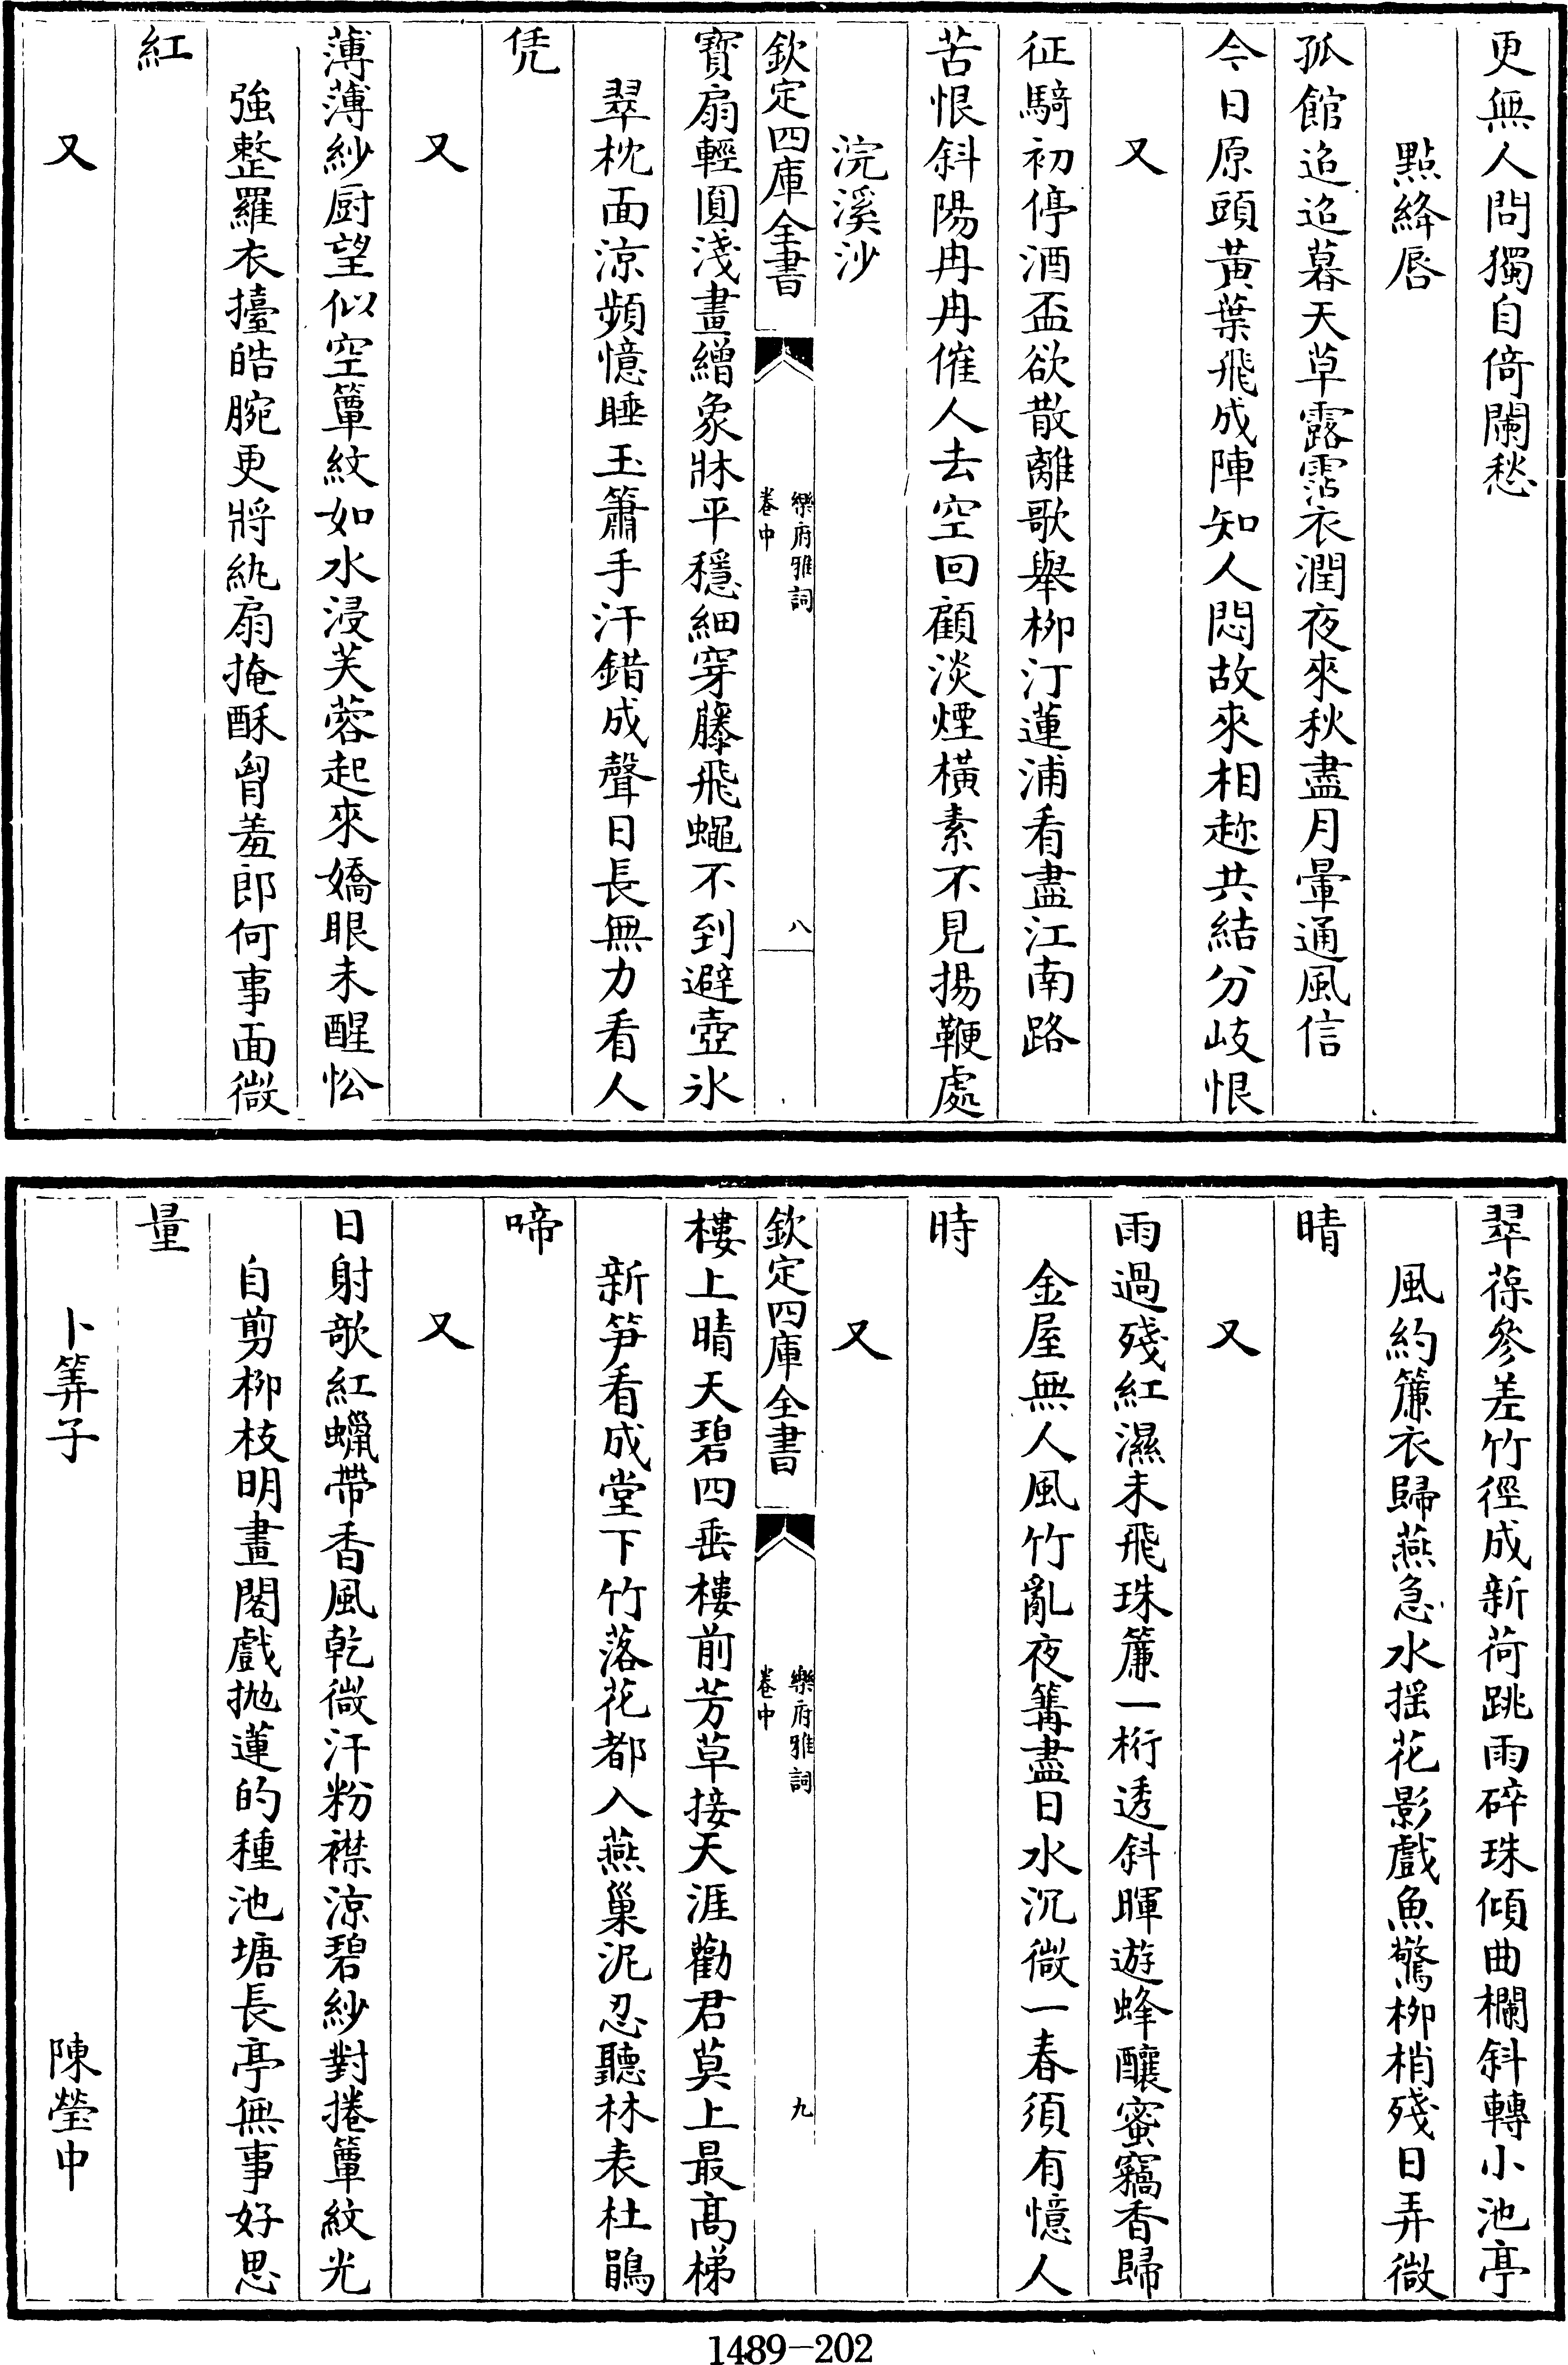 更無人問獨自倚闌愁
點絳唇
孤館迢迢暮天草露霑衣潤夜來秋盡月暈通風信
今日原頭黃葉飛成陣知人悶故來相趂共結分岐恨
又
征騎初停酒盃欲散離歌舉柳汀蓮浦看盡江南路
苦恨斜陽冉冉催人去空回顧淡煙橫素不見揚鞭處
浣溪沙
欽定四庫全書
樂府雅詞
卷中
八
寳扇輕圓淺畫繒象牀平穩細穿藤飛蠅不到避壺氷
翠枕面涼頻憶睡玉簫手汗錯成聲日長無力看人
凭
又
薄薄紗厨望似空簟紋如水浸芙蓉起來嬌眼未醒忪
強整羅衣擡皓腕更將紈扇掩酥胷羞郎何事面微
紅
又
翠葆參差竹徑成新荷跳雨碎珠傾曲欄斜轉小池亭
風約簾衣歸燕急水揺花影戲魚驚柳梢殘日弄微
晴
又
雨過殘紅濕未飛珠簾一桁透斜暉遊蜂釀蜜竊香歸
金屋無人風竹亂夜篝盡日水沉微一春須有憶人
時
又
欽定四庫全書
樂府雅詞
卷中
九
樓上晴天碧四垂樓前芳草接天涯勸君莫上最髙梯
新笋看成堂下竹落花都入燕巢泥忍聽林表杜鵑
啼
又
日射欹紅蠟帶香風乾微汗粉襟涼碧紗對捲簟紋光
自剪柳枝明畫閣戲抛蓮的種池塘長亭無事好思
量
卜筭子
陳瑩中
1489-202